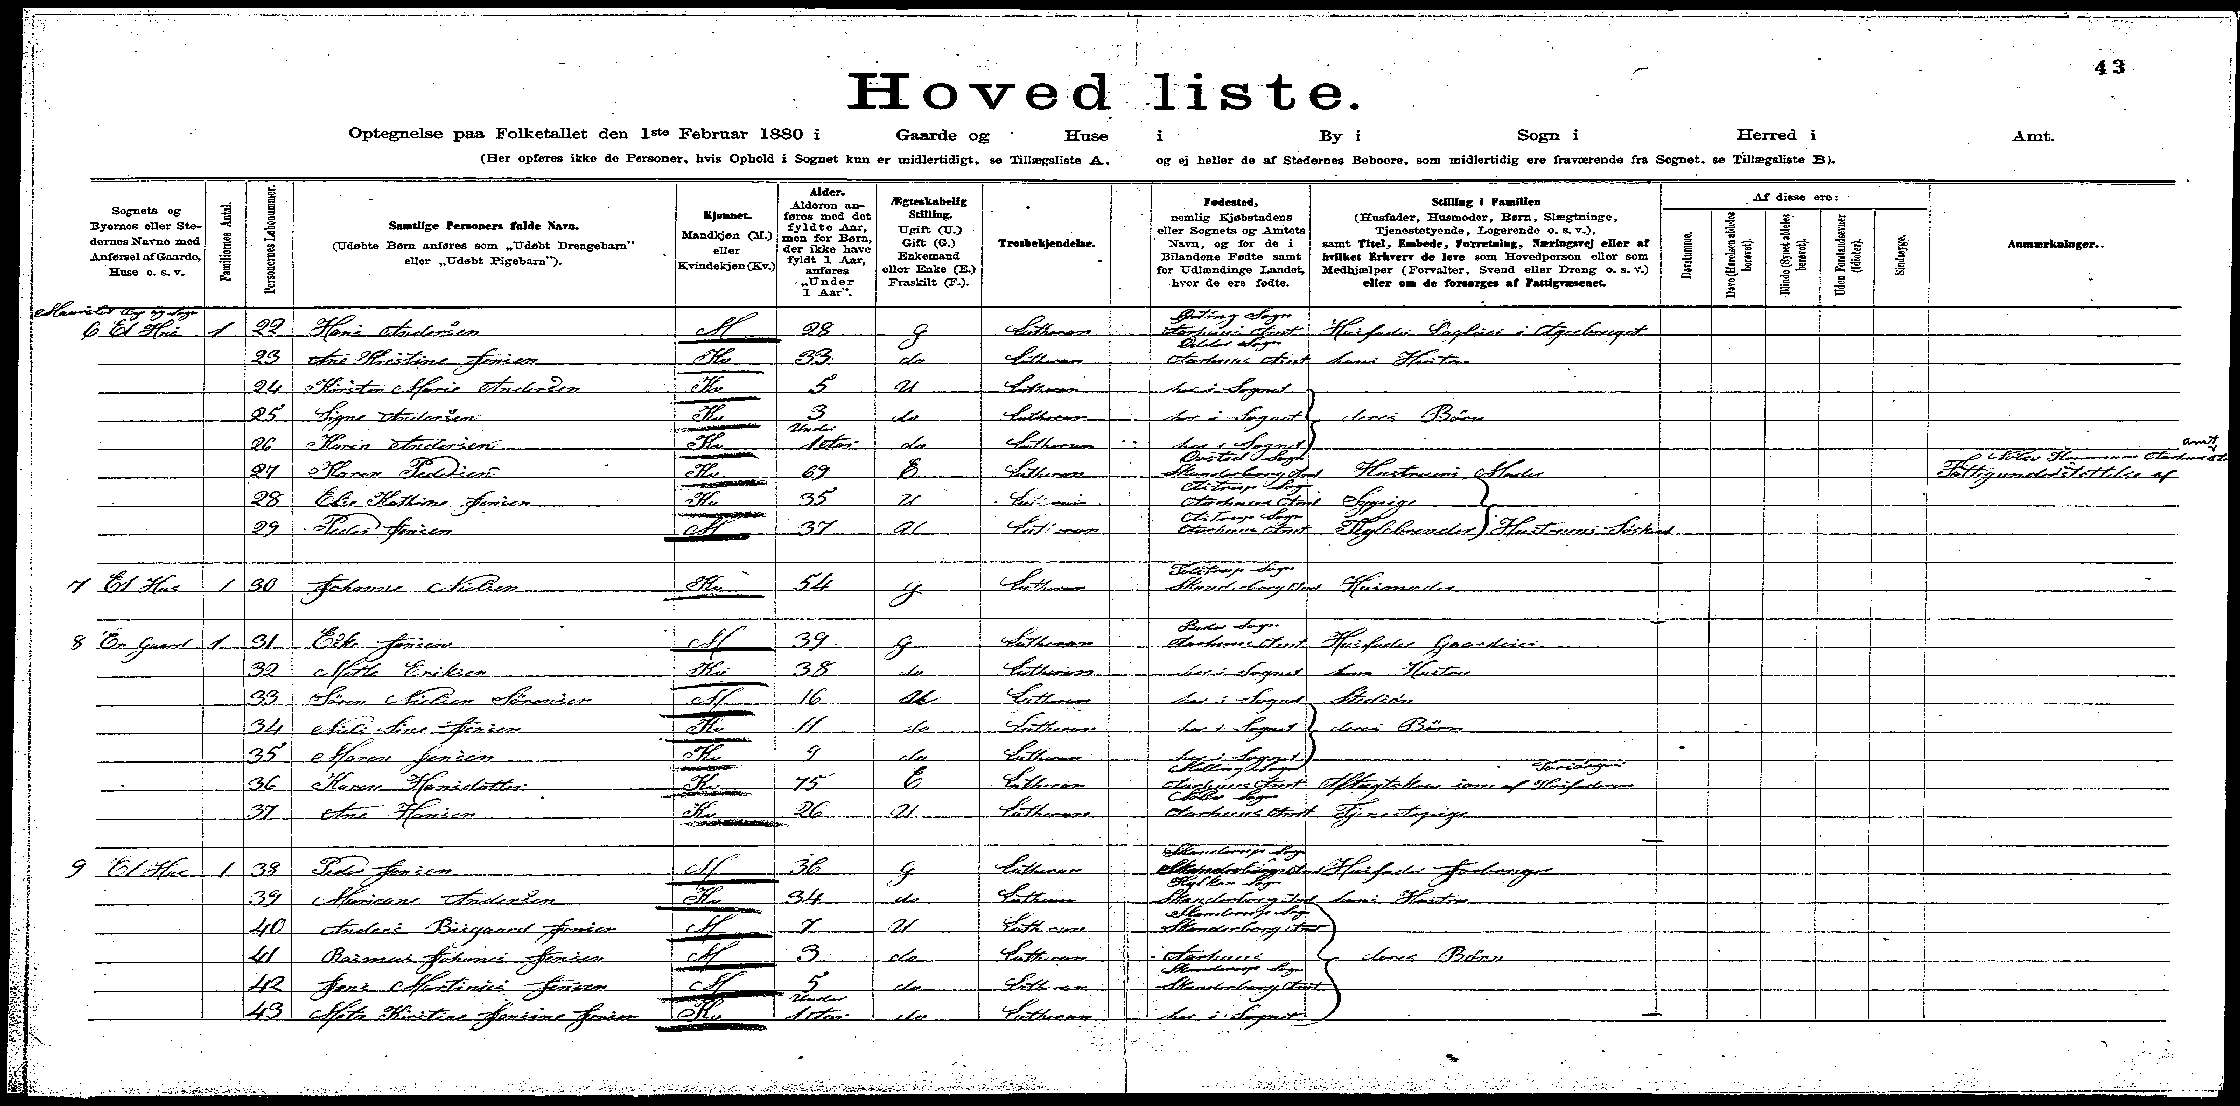 43
Hoved liste.
Optegnelse paa Folketallet den 1ste Februar 1880 i Gaarde og Huse i By i Sogn i Herred i Amt.
(Her opføres ikke de Personer, hvis Ophold i Sognet kun er midlertidigt, se Tillægsliste A, og ej heller de af Stedernes Beboere, som midlertidig ere fraværende fra Sognet, se Tillægsliste B).
Sognets og Byernes eller Stedernes Navne med Anførsel af Gaarde, Huse o. s. v.
Familiernes Antal.
Personernes Løbenummer.
Samtlige Personers fulde Navn.
(Udøbte Børn anføres som „Udøbt Drengebarn" eller „Udøbt Pigebarn").
Kjønnet.
Mandkjøn (M.) eller Kvindekjøn (Kv.)
Alder.
Alderen anføres med det fyldte Aar, men for Børn, der ikke have fyldt 1 Aar, anføres „Under 1 Aar".
Ægteskabelig Stilling.
Ugift (U.) Gift (G.) Enkemand eller Enke (E.) Fraskilt (F.).
Trosbekjendelse.
Fødested,
nemlig Kjøbstadens eller Sognets og Amtets Navn, og for de i Bilandene Fødte samt for Udlændinge Landet, hvor de ere fødte.
Stilling i Familien
(Husfader, Husmoder, Børn, Slægtninge, Tjenestetyende, Logerende o. s. v.),
samt Titel, Embede, Forretning, Næringsvej eller af hvilket Erhverv de leve som Hovedperson eller som Medhjælper (Forvalter, Svend eller Dreng o. s. v.) eller om de forsørges af Fattigvæsenet.
Af disse ere:
Døvstumme.
Døve (Hørelsen aldeles berøvet).
Blinde (Synet aldeles berøvet).
Uden Forstandsevner (Idioter).
Sindssyge.
Anmærkninger.
By og Sogn
6 Et Hus 1 22 Hans Andersen M 28 G Lutheran Sogn Aarhuus Amt Husfader Daglejer i Agerbruget
23 Ane Kirstine Jensen Kv 33 do Lutheran Odder Sogn Aarhuus Amt hans Hustru
24 Kirsten Marie Andersen Kv 5 U Lutheran her i Sognet
25 Signe Andersen Kv 3 do Lutheran her i Sognet deres Børn
26 Karen Andersen Kv Under 1 Aar do Lutheran her i Sognet
27 Karen Pedersen Kv 69 E Lutheran Sogn Skanderborg Amt Hustruens Moder Fattigunderstøttelse af Amt
28 Else Kathrine Jensen Kv 35 U Lutheran Sogn Aarhuus Amt Sypige
29 Peder Jensen M 37 U Lutheran Sogn Aarhuus Amt Hustruens Søskend
7 Et Hus 1 30 Johanne Nielsen Kv 54 G Lutheran Sogn Skanderborg Amt Husmoder
8 En Gaard 1 31 Jensen M 39 G Lutheran Beder Sogn Aarhuus Amt Husfader Gaardejer
32 Mette Eriksen Kv 38 do Lutheran her i Sognet hans Hustru
33 Søren Nielsen Sørensen M 16 U Lutheran her i Sognet Stedsøn
34 Niels Sine Jensen Kv 11 do Lutheran her i Sognet deres Børn
35 Maren Jensen Kv 9 do Lutheran her i Sognet
36 Karen Hansdatter Kv 75 E Lutheran Malling Sogn Aarhuus Amt Aftægtskone som af Husfaderen
37 Ane Hansen Kv 26 U Lutheran Sogn Aarhuus Amt Tjenestepige
9 Et Hus 1 38 Peder Jensen M 36 G Lutheran Skanderup Sogn Skanderborg Amt Husfader
39 Mariane Andersen Kv 34 do Lutheran Sogn Skanderborg Amt hans Hustru
40 Anders Birgaard Jensen M 7 U Lutheran Skanderup Sogn Skanderborg Amt
41 Rasmus Johannes Jensen M 3 do Lutheran Aarhuus deres Børn
42 Jens Martinus Jensen M 5 do Lutheran Skanderup Sogn Skanderborg Amt
43 Mette Kirstine Jensine Jensen Kv Under 1 Aar do Lutheran her i Sognet